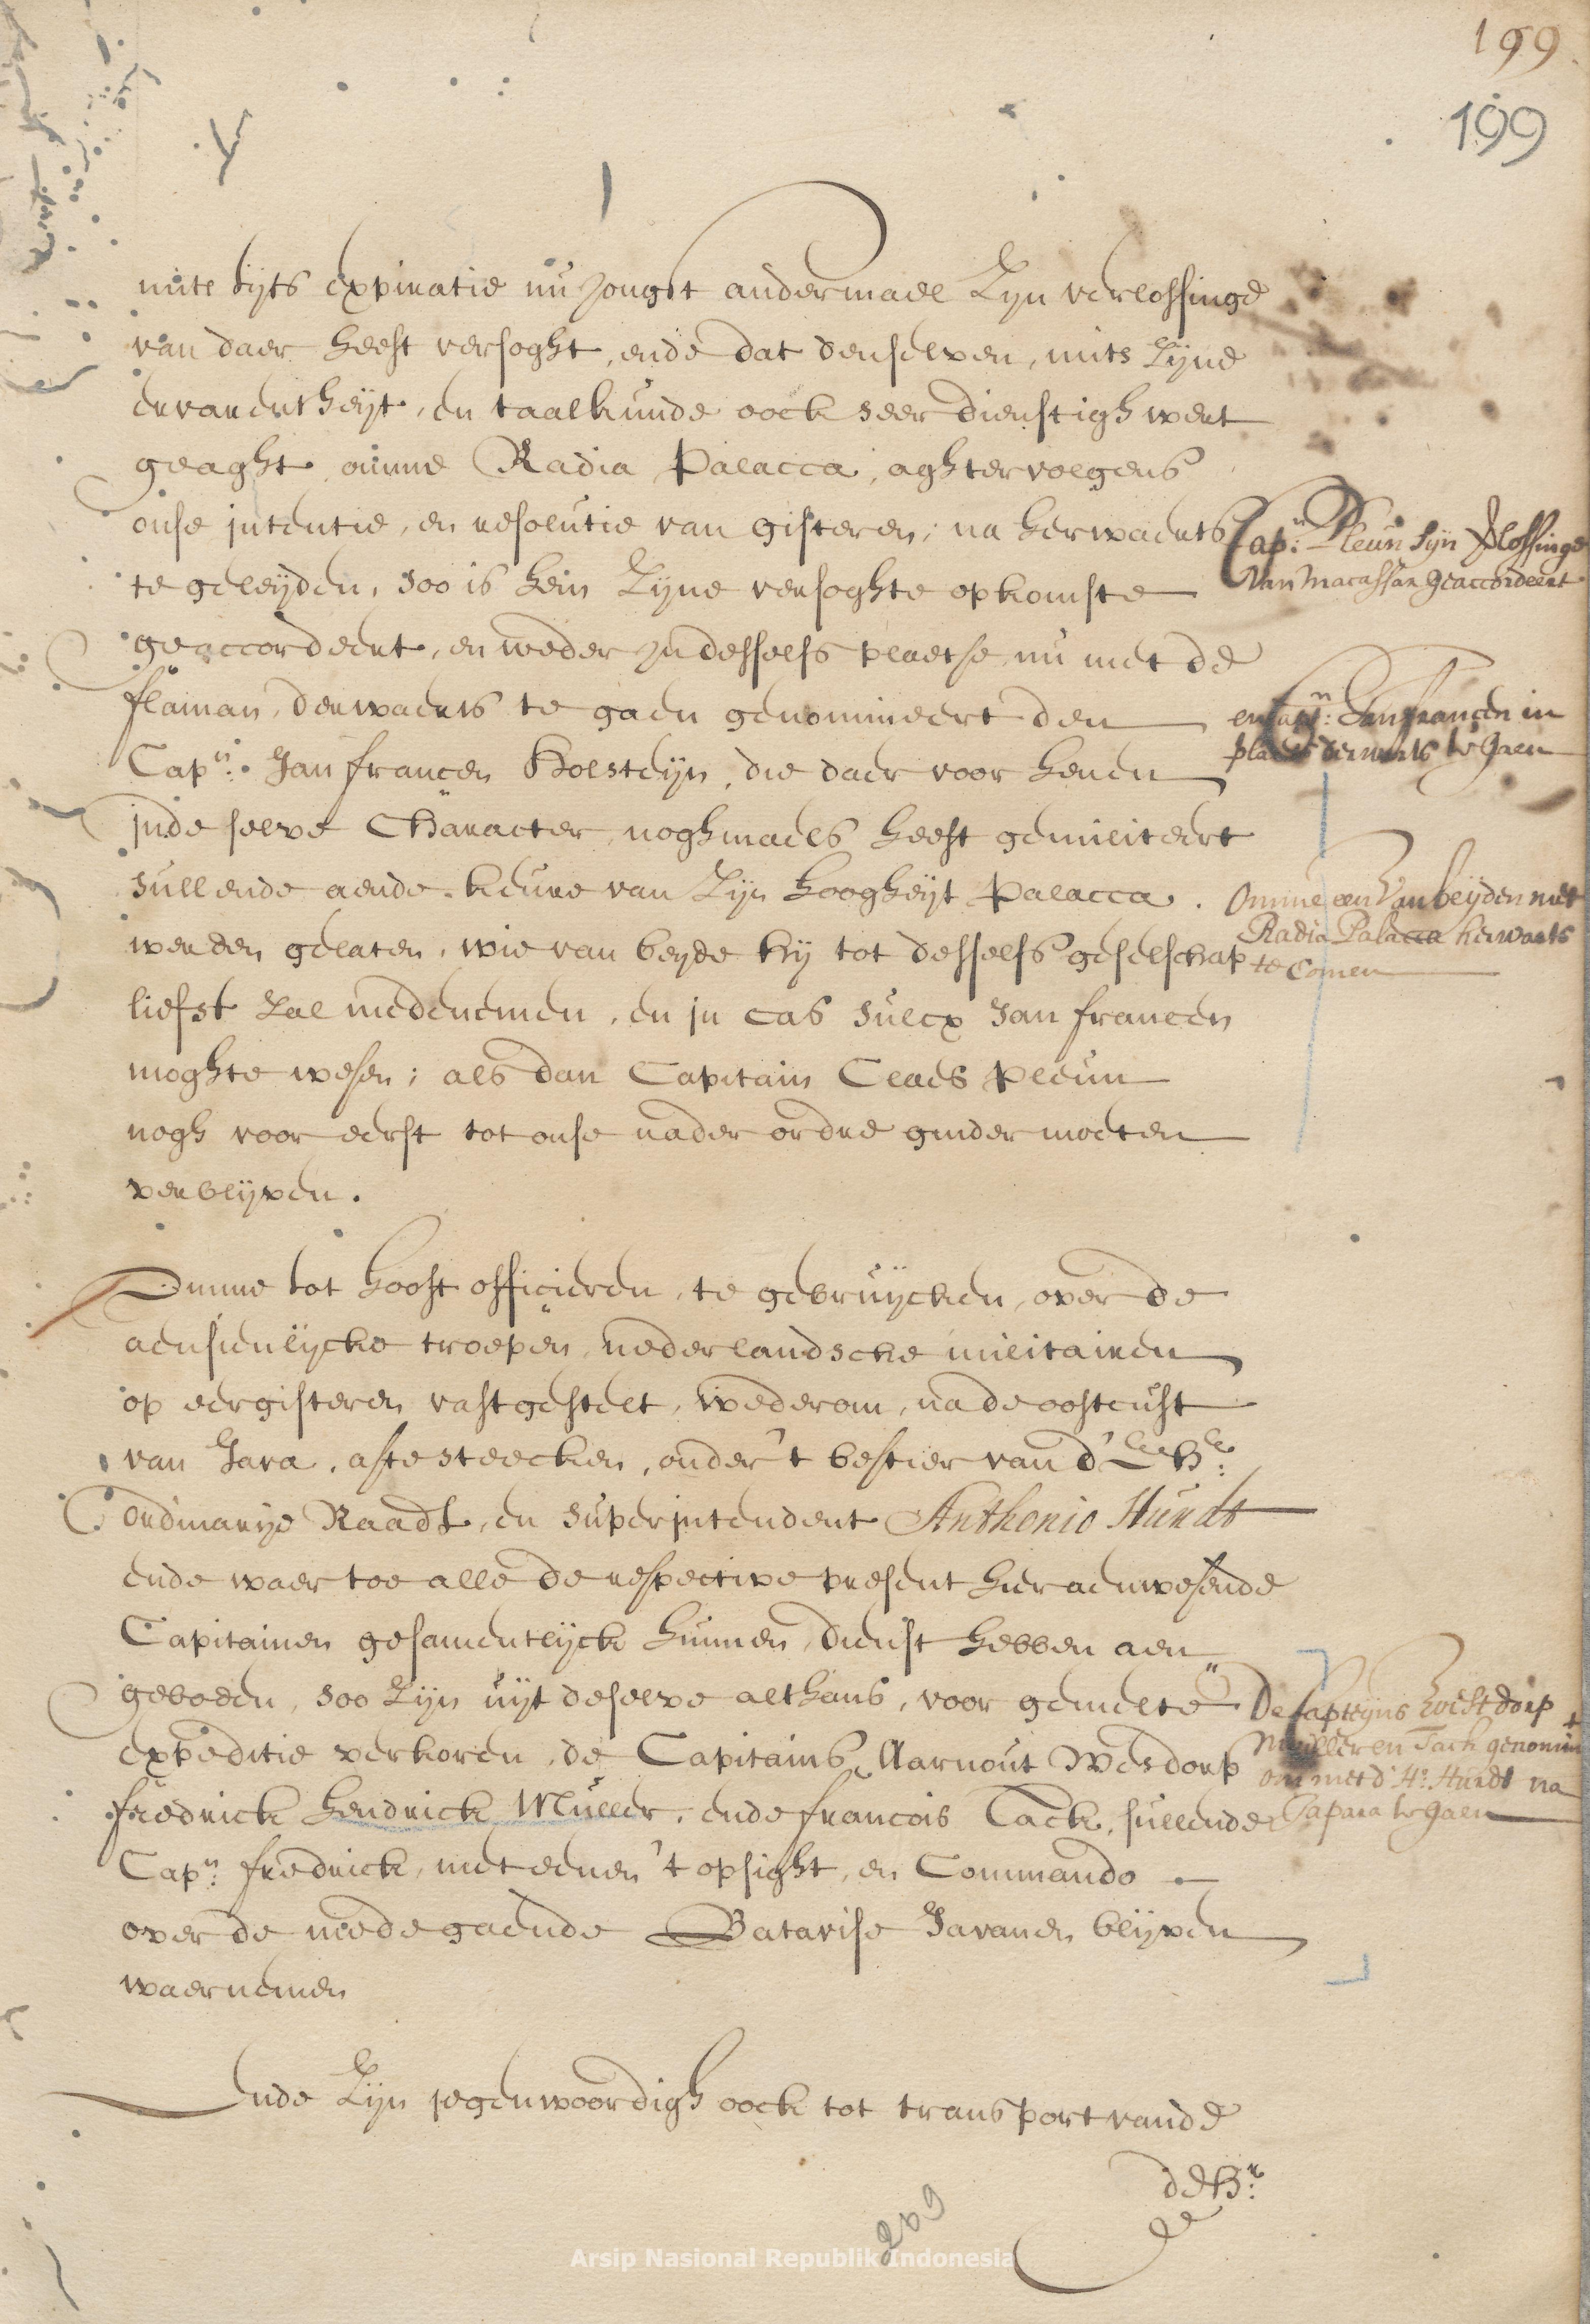 199
199
mits tijts expiratie nu jongst andermael zijn verlossinge
van daer heeft versoght, ende dat denselven, mits zijne
ervarentheijt, en taalkunde oock seer dienstigh wert
geaght, omme Radia Palacca, aghtervolgens
onse intentie, en resolutie van gisteren, na herwaerts
te geleijden, soo is hem zijne versoghte opkomste
geaccordeert, en weder in desselfs plaetse, nu met de
flaman, derwaerts te gaen genomineert den
Capn: Jan francen Holsteijn, die daer voor henen
in de selve Character, noghmaels heeft gemiliteert
sullende aende keure van zijn hoogheijt Palacca.
werden gelaten, wie van beyde hij tot desselfs geselschap
liefst zal medenemen, en in cas sulcx Jan francen
moghte wesen; als dan Capitain Claes pleun
nogh voor eerst tot onse nader ordre ginder moeten
verblijven.
Capn: Pleun sijn Verlossinge
van Macassar geaccordeert
en Capn: Jan francen in
plaets derwaerts te gaen
omme een van beijden met
Radia Palacca herwaarts
te Comen
Omme tot hooft officieren, te gebruijcken, over de
aensienlijcke troepen, nederlandsche militairen
op eergisteren vastgestelt, wederom, na de oostcust
van Java, afte steecken, onder 't bestier van d' E Hr:
ordinarije Raadt, en superintendent Anthonio Hurdt
ende waer toe alle de respective present hier aenwesende
Capitainen gesamentlijck hunnen, dienst hebben aen
geboden, soo zijn uijt deselve althans, voor gemelte
expeditie verkoren, de Capitains Aarnout Wesdorp
fredrick hendrick Muller, ende francois Tack, sullende
Capn: fredrick, met eenen 't opsight, en Commando
over de mede gaende Batavise Javanen blijven
waernemen
De Capteijns Westdorp
Muller en Tack genomint
om met d' Hr: Hurdt na
Japara te gaen
Ende zijn jegenwoordigh oock tot transport vande
de Hr:
269
Arsip Nasional Republik Indonesia